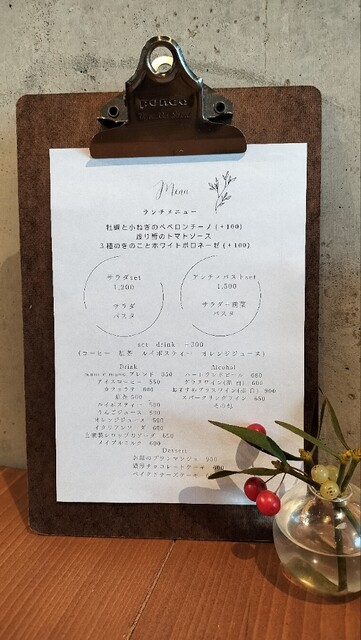 penco
Menu
ランチメニュー
牡蠣と小ねぎのペペロンチーノ (+100)
渡り蟹のトマトソース
3種のきのことホワイトボロネーゼ (+100)
サラダset
1,200
サラダ
パスタ
アンティパストset
1,500
サラダ+前菜
パスタ
set drink -300
(コーヒー 紅茶 ルイボスティー オレンジジュース)
Drink
ブレンド 550
アイスコーヒー 550
カフェラテ 600
紅茶 500
ルイボスティー 500
りんごジュース 500
オレンジジュース 500
イタリアンソーダ 600
自家製シロップのソーダ 650
メイプルミルク 600
Alcohol
ハートランドビール 680
グラスワイン(赤 白) 600
おすすめグラスワイン(赤 白) 900
スパークリングワイン 650
その他
Dessert
お豆のブランマンジェ 500
濃厚チョコレートケーキ 600
ベイクドチーズケーキ